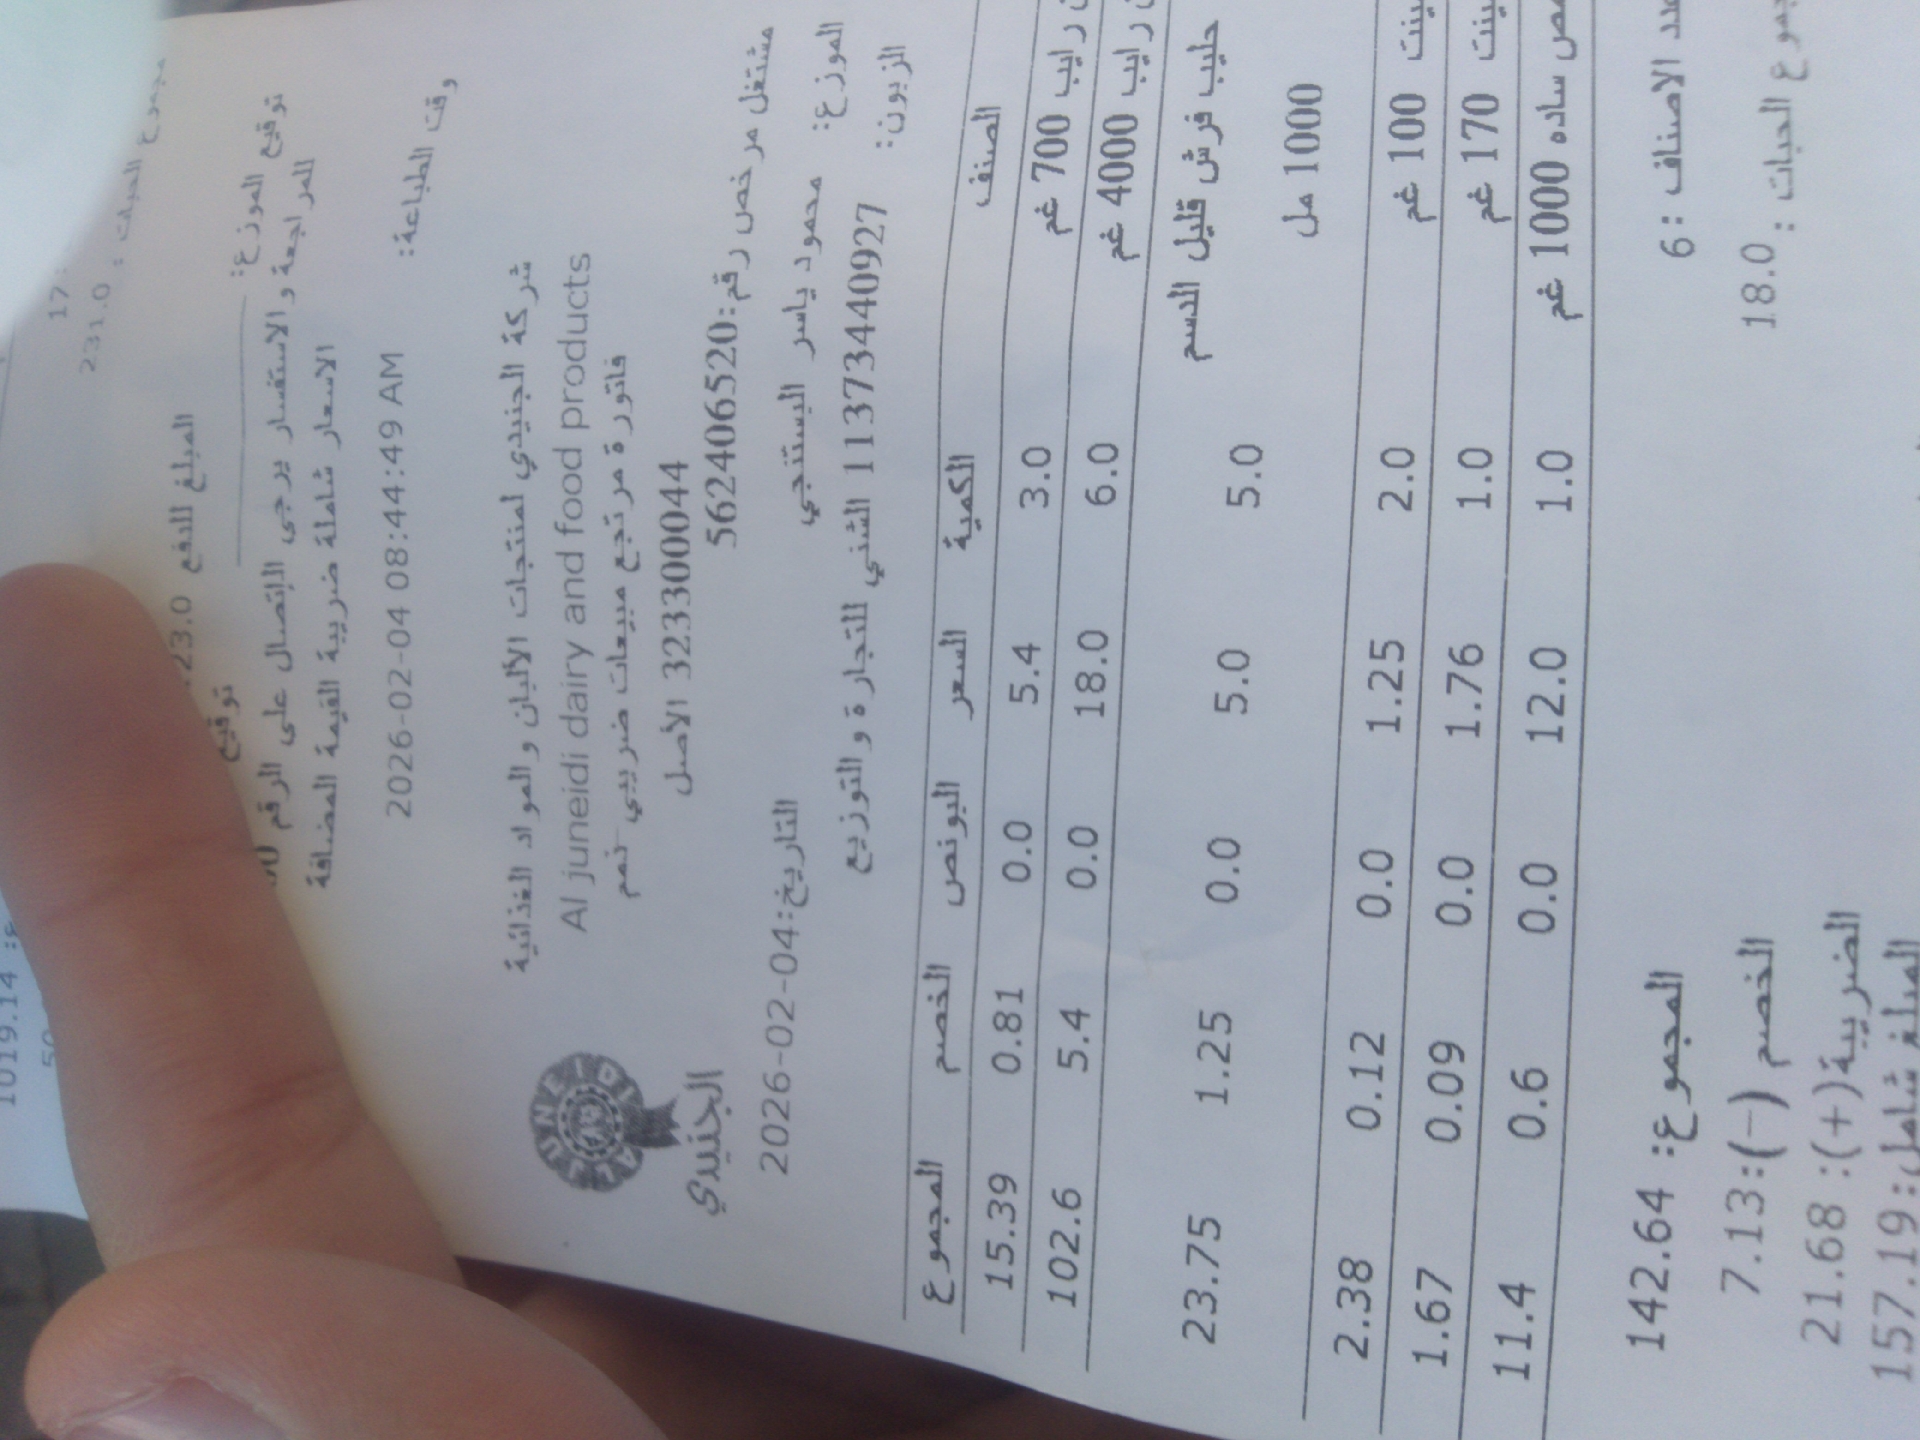 1019.14
17:
231.0
مجموع الحبات :
المبلغ للدفع
توقيع الموزع:
توقيع
للمراجعة والاستفسار يرجى الاتصال على الرقم
الاسعار شاملة ضريبة القيمة المضافة
وقت الطباعة: 2026-02-04 08:44:49 AM
شركة الجنيدي لمنتجات الألبان والمواد الغذائية
Al juneidi dairy and food products
AL JUNEIDI
الجنيدي
فاتورة مرتجع مبيعات ضريبي ذمم
323300044 الاصل
مشتغل مرخص رقم:562406520
الموزع: محمود ياسر البستنجي
التاريخ:2026-02-04
الزبون: 1137344092​7 الشني للتجارة والتوزيع
الصنف الكمية السعر البونص الخصم المجموع
رايب 700 غم 3.0 5.4 0.0 0.81 15.39
رايب 4000 غم 6.0 18.0 0.0 5.4 102.6
حليب فرش قليل الدسم
1000 مل 5.0 5.0 0.0 1.25 23.75
100 غم 2.0 1.25 0.0 0.12 2.38
170 غم 1.0 1.76 0.0 0.09 1.67
ساده 1000 غم 1.0 12.0 0.0 0.6 11.4
عدد الاصناف : 6
المجموع: 142.64
مجموع الحبات : 18.0
الخصم (-): 7.13
الضريبة(+): 21.68
المبلغ شامل: 157.19